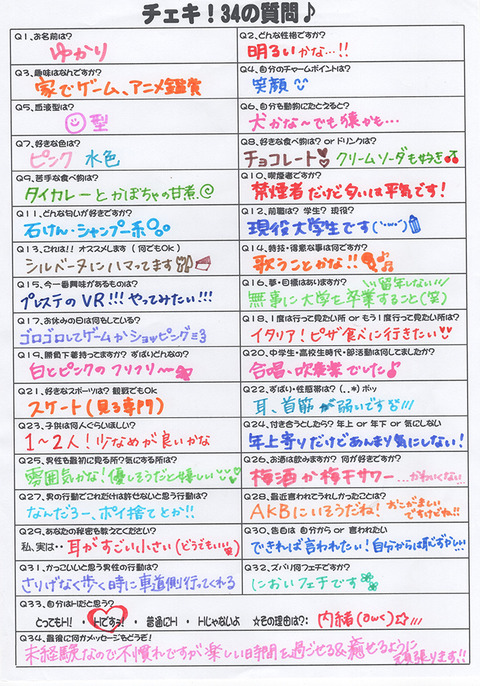 チェキ！34の質問♪
Q1、お名前は？
ゆかり
Q2、どんな性格ですか？
明るいかな…!!
Q3、趣味はなんですか？
家でゲーム、アニメ鑑賞
Q4、自分のチャームポイントは？
笑顔
Q5、血液型は？
型
Q6、自分を動物にたとえると？
犬かな〜でも猿かも…
Q7、好きな色は？
ピンク 水色
Q8、好きな食べ物は？ or ドリンクは？
チョコレート クリームソーダも好き
Q9、苦手な食べ物は？
タイカレーとかぼちゃの甘煮
Q10、喫煙者ですか？
禁煙者だけど匂いは平気です！
Q11、どんな匂いが好きですか？
石けん・シャンプー系
Q12、前職は？ 学生？ 現役？
現役大学生です
Q13、これは！！ オススメします （何でもOK）
シルバーヌにハマってます
Q14、特技・得意な事は何ですか？
歌うことかな!!
Q15、今一番興味があるものは？
プレステのVR!!! やってみたい!!!
Q16、夢・目標はありますか？
留年しない
無事に大学を卒業すること(笑)
Q17、お休みの日は何をしている？
ゴロゴロしてゲームかショッピング
Q18、1度行って見たい所 or もう1度行って見たい所は？
イタリア！ピザ食べに行きたい
Q19、勝負下着持ってますか？ ずばりどんなの？
白とピンクのフリフリ〜
Q20、中学生・高校生時代・部活動は何してましたか？
合唱、吹奏楽でした
Q21、好きなスポーツは？ 観戦でもOK
スケート(見る専門)
Q22、ずばり・性感帯は？ (..*) ポッ
耳、首筋が弱いです
Q23、子供は何人ぐらいほしい？
1〜2人！少なめが良いかな
Q24、付き合うとしたら？ 年上 or 年下 or 気にしない
年上寄りだけどあんまり気にしない！
Q25、男性を最初に見る所？気にする所は？
雰囲気かな！優しそうだと嬉しい
Q26、お酒は飲みますか？ 何が好きですか？
梅酒か梅干サワー…かわいくない
Q27、男の行動でこれだけは許せないと思う行動は？
なんだろー、ポイ捨てとか!!
Q28、最近言われてうれしかったことは？
AKBにいそうだね！おこがましいですけどね!!
Q29、あなたの秘密を教えてください？
私、実は‥耳がすごい小さい(どうでもいい!!笑)
Q30、告白は 自分から or 言われたい
できれば言われたい！自分からは恥ずかしい…
Q31、かっこいいと思う男性の行動は？
さりげなく歩く時に車道側行ってくれる
Q32、ズバリ何フェチですか？
においフェチです
Q33、自分はHだと思う？
とってもH！ ・ Hですぅ！ ・ 普通にH ・ Hじゃないよ 女その理由は？： 内緒(>ω<)☆
Q34、最後に何かメッセージをどうぞ！
未経験なので不慣れですが楽しい時間を過ごせる&癒せるように
頑張ります!!